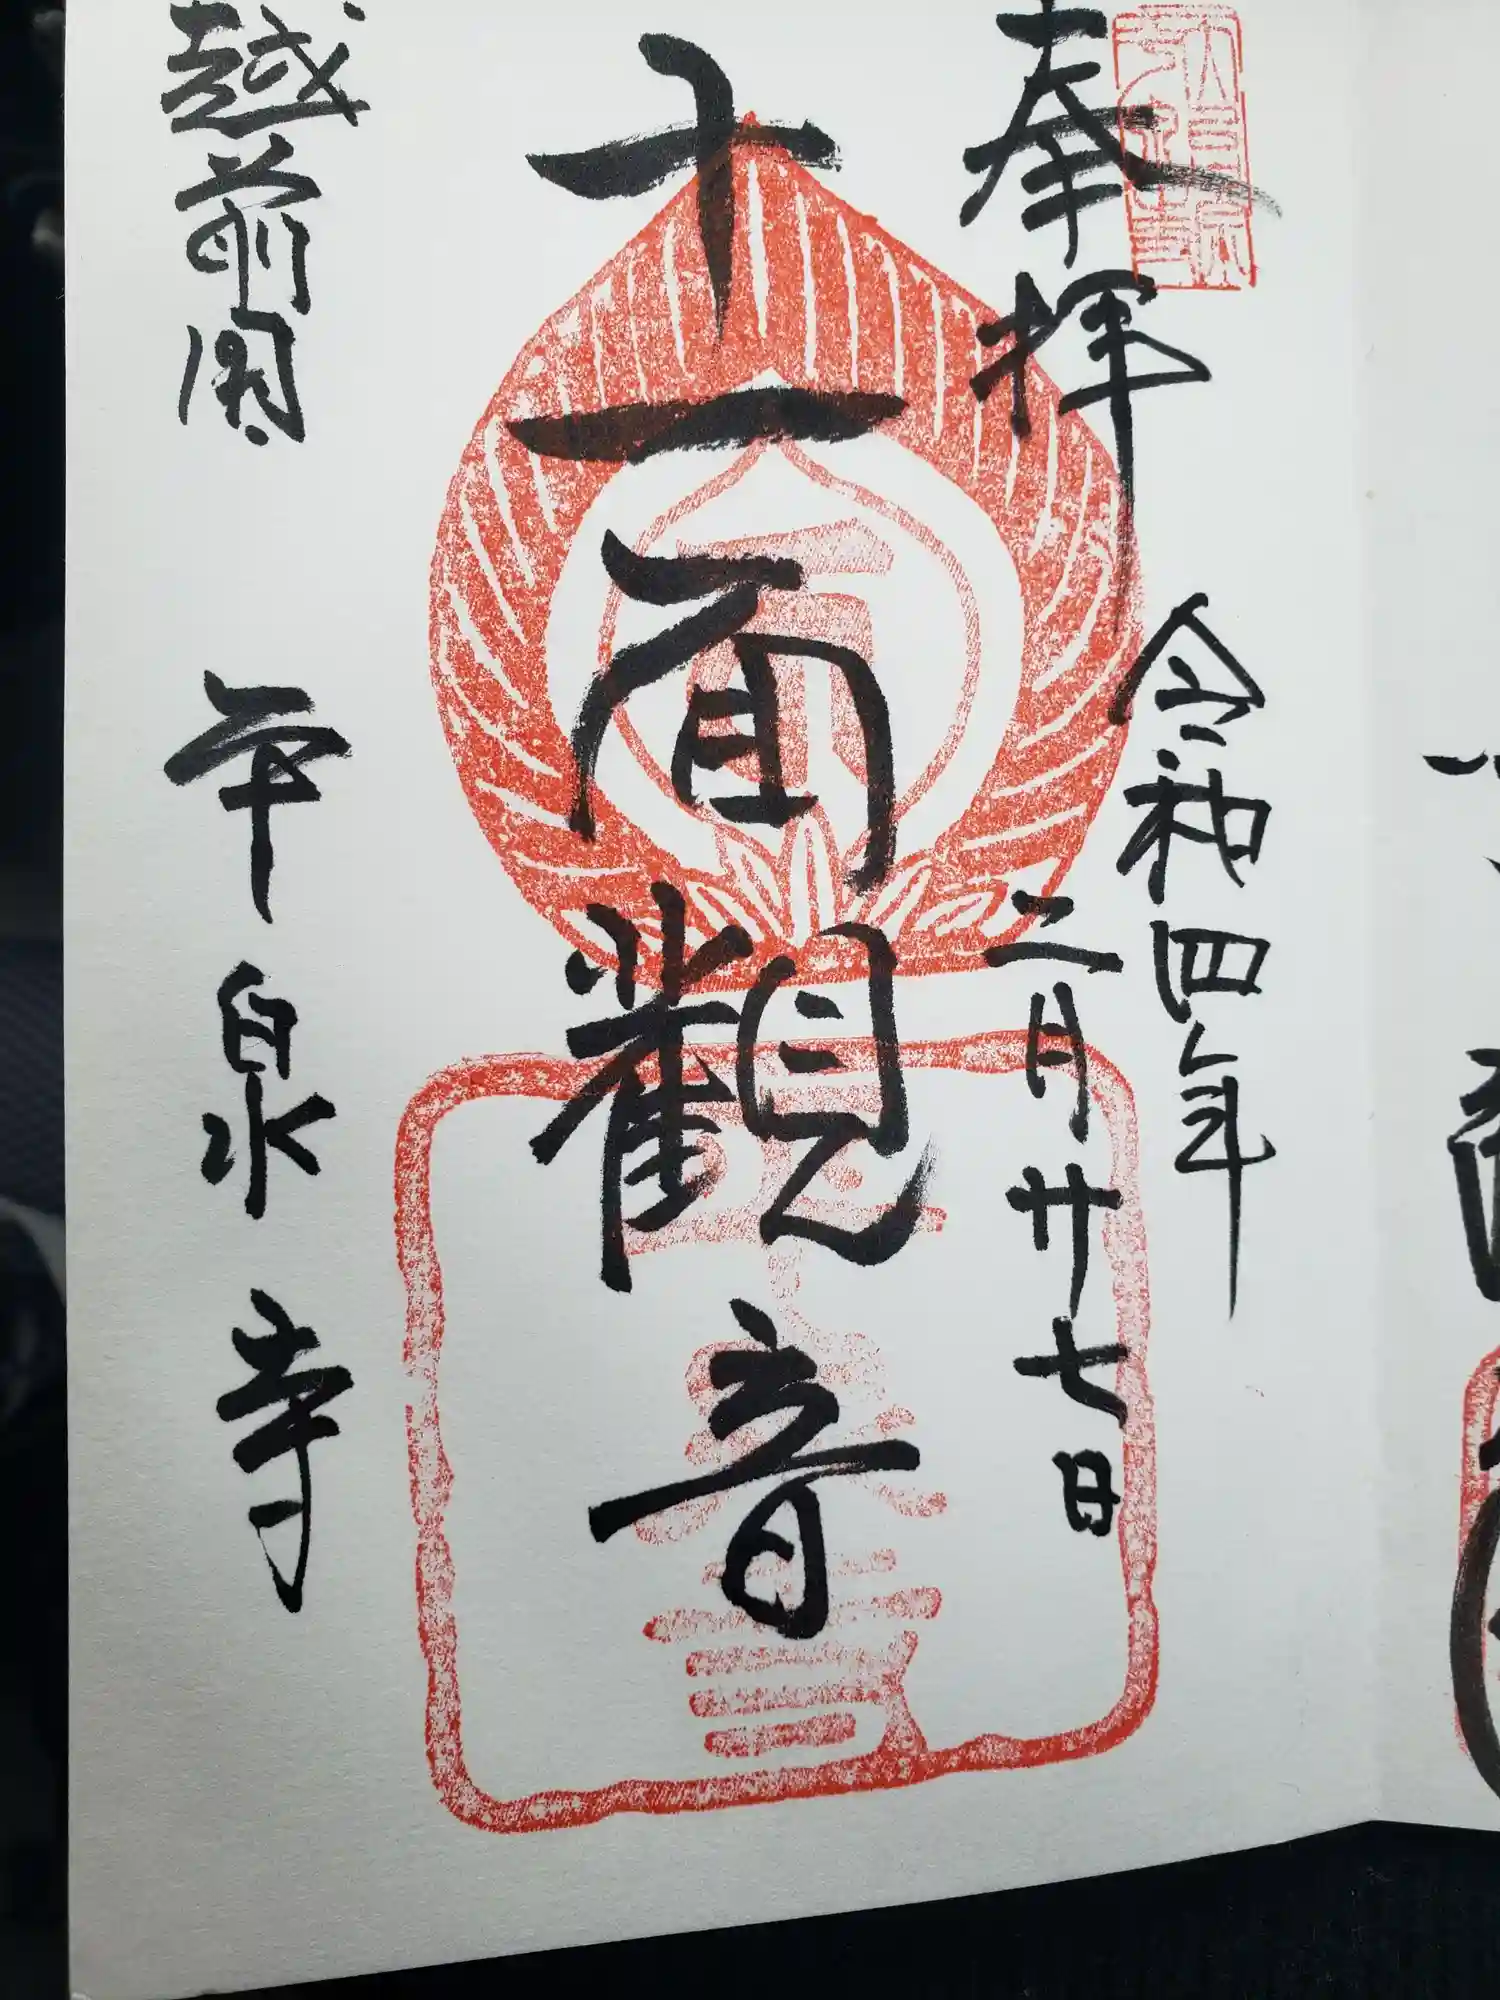 奉拝
令和四年
二月廿七日
十一面觀音
越前国
平泉寺